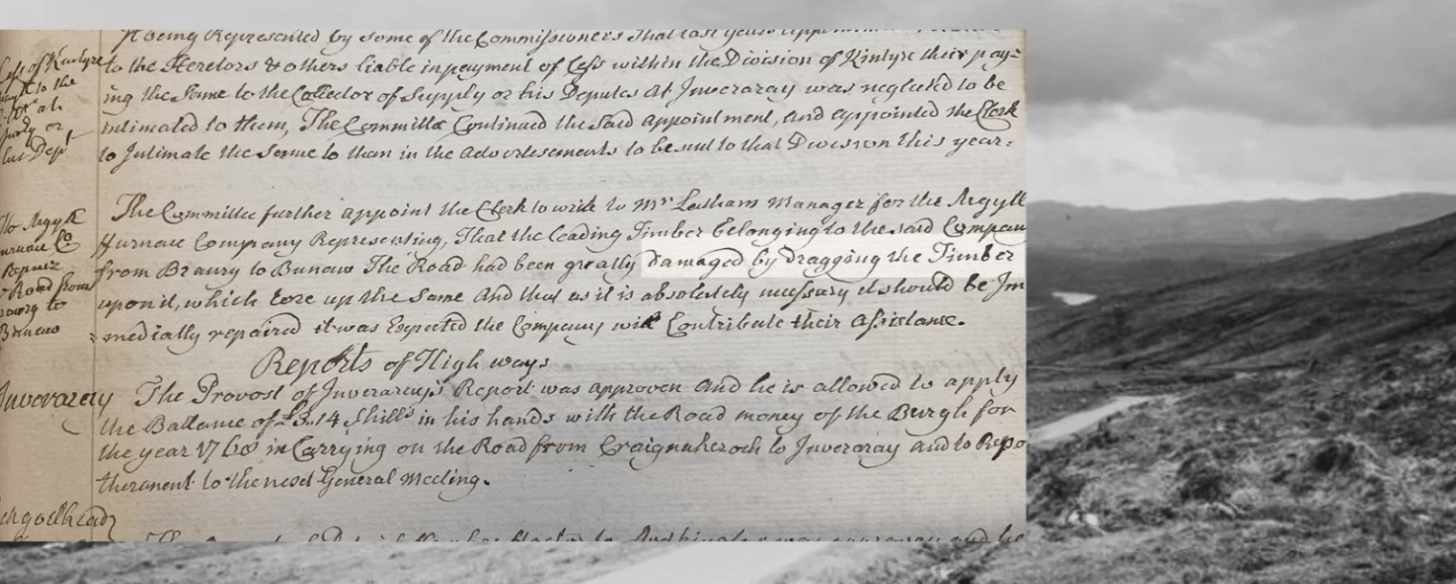 It being Represented by some of the Commissioners That last years
Cess of Kintyre
to the Heretors & others liable in payment of Cess within the Division of Kintyre their pay=
to the
ing the same to the Collector of Supply or his Deputes at Inveraray was neglected to be
intimated to them, The Committe Continued the said appointment, and appointed the Clerk
or
to Intimate the same to them in the advertisements to be sent to that Division this year.
The Committee further appoint the Clerk to write to Mr Latham Manager for the Argyll
Argyll
furnace Company Representing, That the leading Timber belonging to the said Compan
furnace Co
from Braury to Bunaw The Road had been greatly damaged by dragging the Timber
Repair
Road from
upon it, which tore up the same And that as it is absolutely necessary it should be Im
to
Bunaw
mediatly repaired it was Expected the Company will Contribute their assistance.
Reports of High ways
Inveraray
The Provost of Inveraray's Report was approven and he is allowed to apply
the Ballance of £3..14 shills in his hands with the Road money of the Burgh for
the year 1768 in Carrying on the Road from Craignaheroch to Inveraray and to Repo
theranent to the next General Meeting.